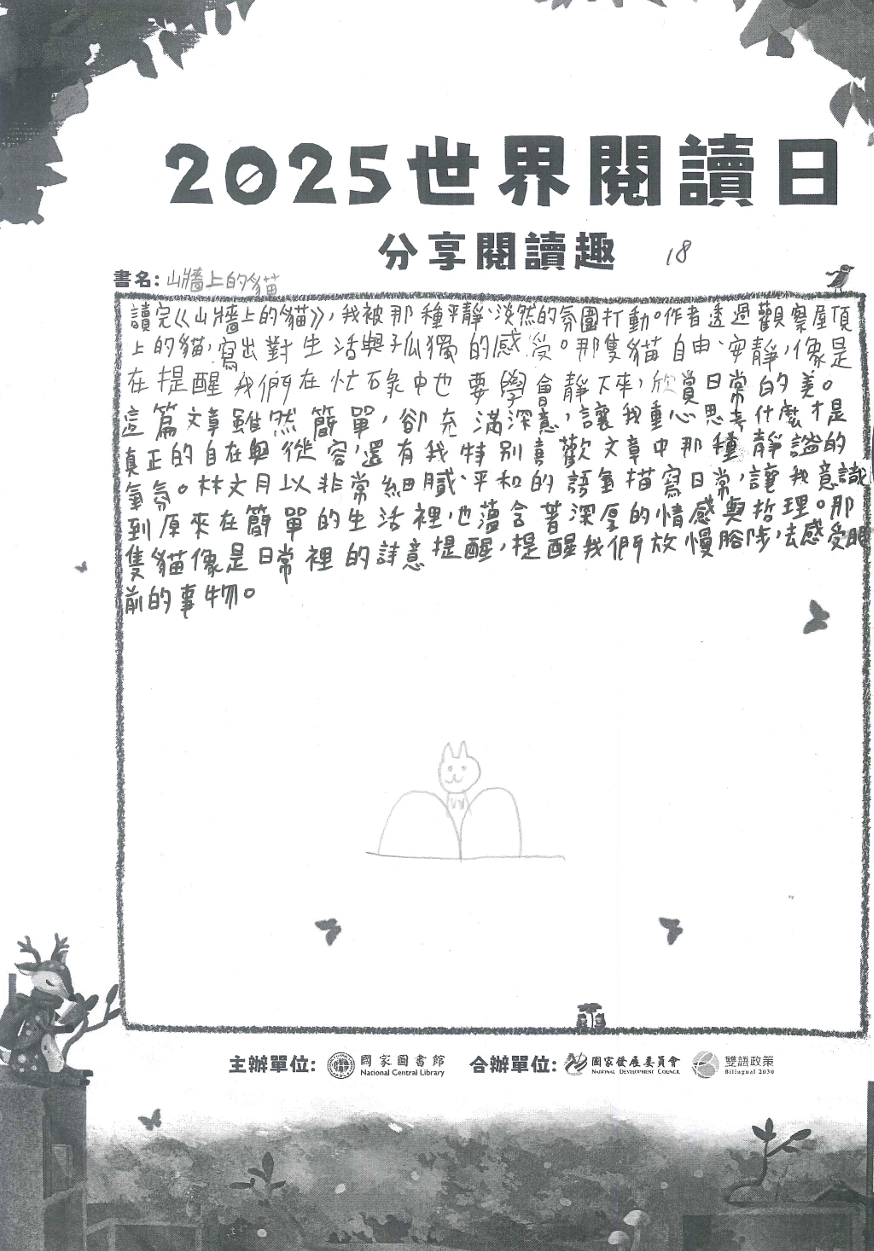 2025世界閱讀日
分享閱讀趣 18
書名: 山牆上的貓
讀完《山牆上的貓》,我被那種平靜、淡然的氛圍打動。作者透過觀察屋頂
上的貓,寫出對生活與孤獨的感受。那隻貓自由、安靜,像是
在提醒我們在忙碌中也要學會靜下來,欣賞日常的美。
這篇文章雖然簡單,卻充滿深意,讓我重心思考什麼才是
真正的自在與從容,還有我特別喜歡文章中那種靜謐的
氣氛。林文月以非常細膩、平和的語氣描寫日常,讓我意識
到原來在簡單的生活裡,也蘊含著深厚的情感與哲理。那
隻貓像是日常裡的詩意提醒,提醒我們放慢腳步,去感受眼
前的事物。
主辦單位: 國家圖書館 National Central Library 合辦單位: 國家發展委員會 National Development Council 雙語政策 Bilingual 2030